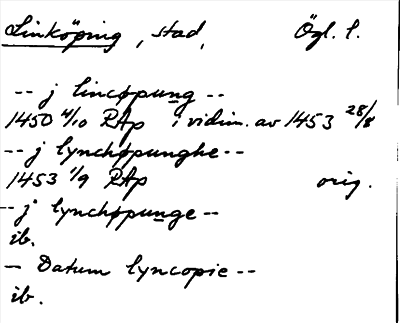 Linköping, stad, Ögl. l.
-- j lincøpung --
1450 4/10 RAp i vidim. av 1453 28/8
-- j lynchøpunghe --
1453 1/9 RAp orig.
-- j lynchøpunge --
ib.
-- Datum lyncopie --
ib.